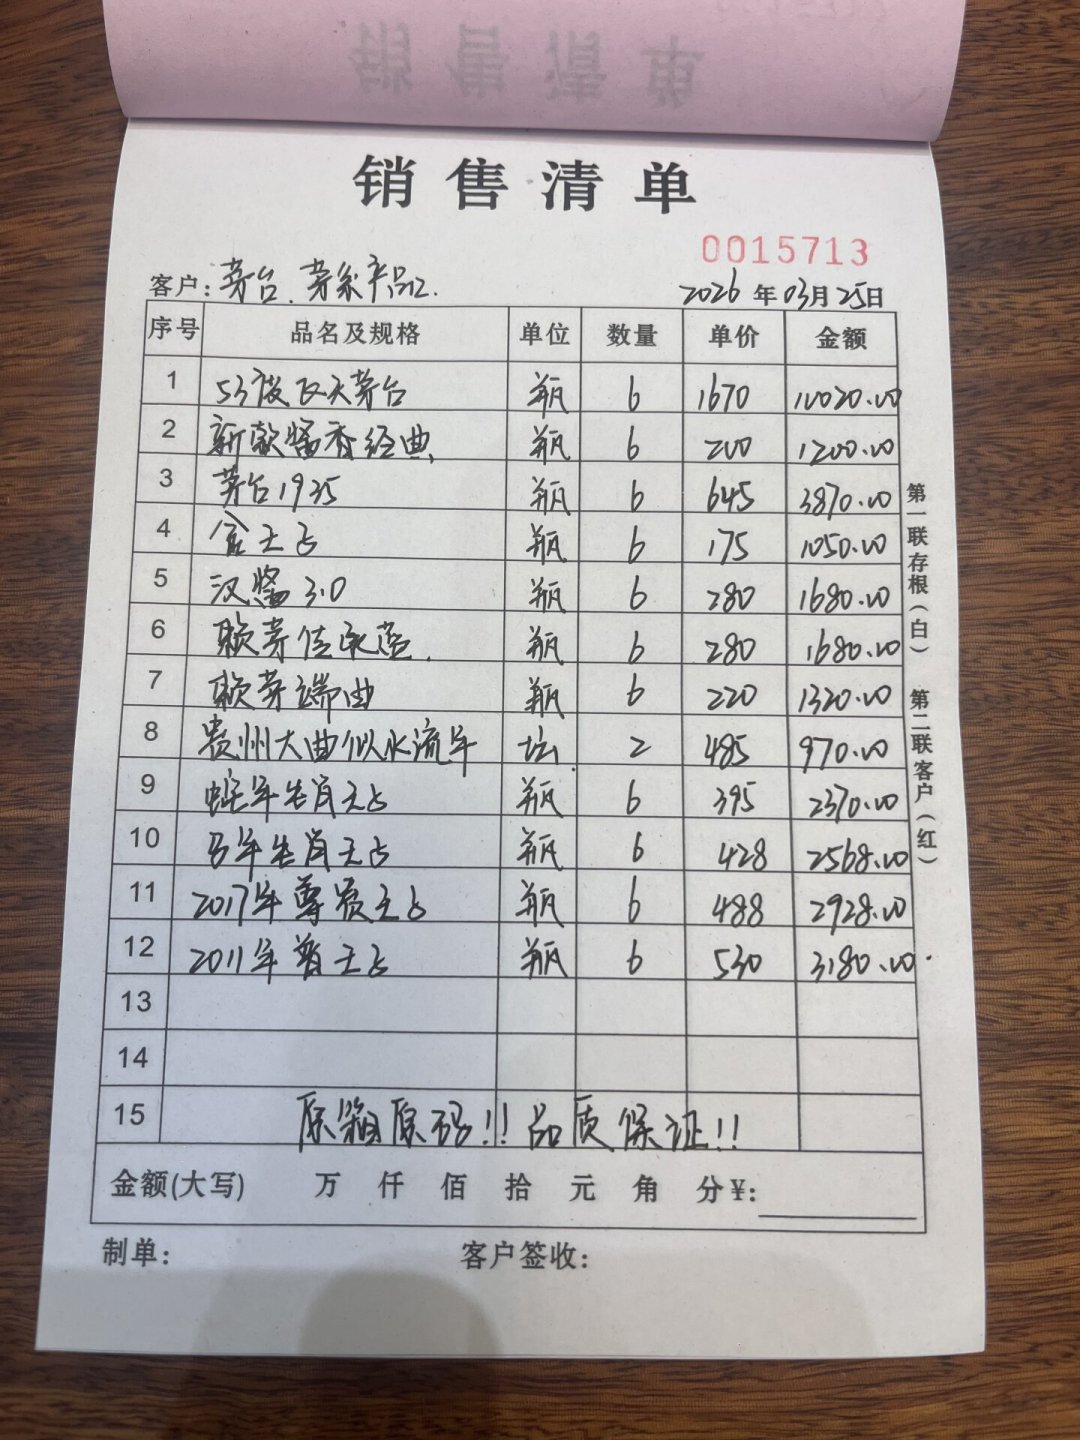 销售清单
0015713
客户: 茅台、茅系产品汇.
2026年03月25日
序号 品名及规格 单位 数量 单价 金额
1 53度飞天茅台 瓶 6 1670 10020.00
2 新款酱香经典 瓶 6 200 1200.00
3 茅台1935 瓶 6 645 3870.00
4 金王子 瓶 6 175 1050.00
5 汉酱3.0 瓶 6 280 1680.00
6 赖茅传承蓝 瓶 6 280 1680.00
7 赖茅端曲 瓶 6 220 1320.00
8 贵州大曲似水流年 坛 2 485 970.00
9 蛇年生肖王子 瓶 6 395 2370.00
10 马年生肖王子 瓶 6 428 2568.00
11 2017年尊贵王子 瓶 6 488 2928.00
12 2011年普王子 瓶 6 530 3180.00
13
14
15 原箱原码!! 品质保证!!
金额(大写) 万 仟 佰 拾 元 角 分 ¥:
制单: 客户签收:
第一联存根(白) 第二联客户(红)